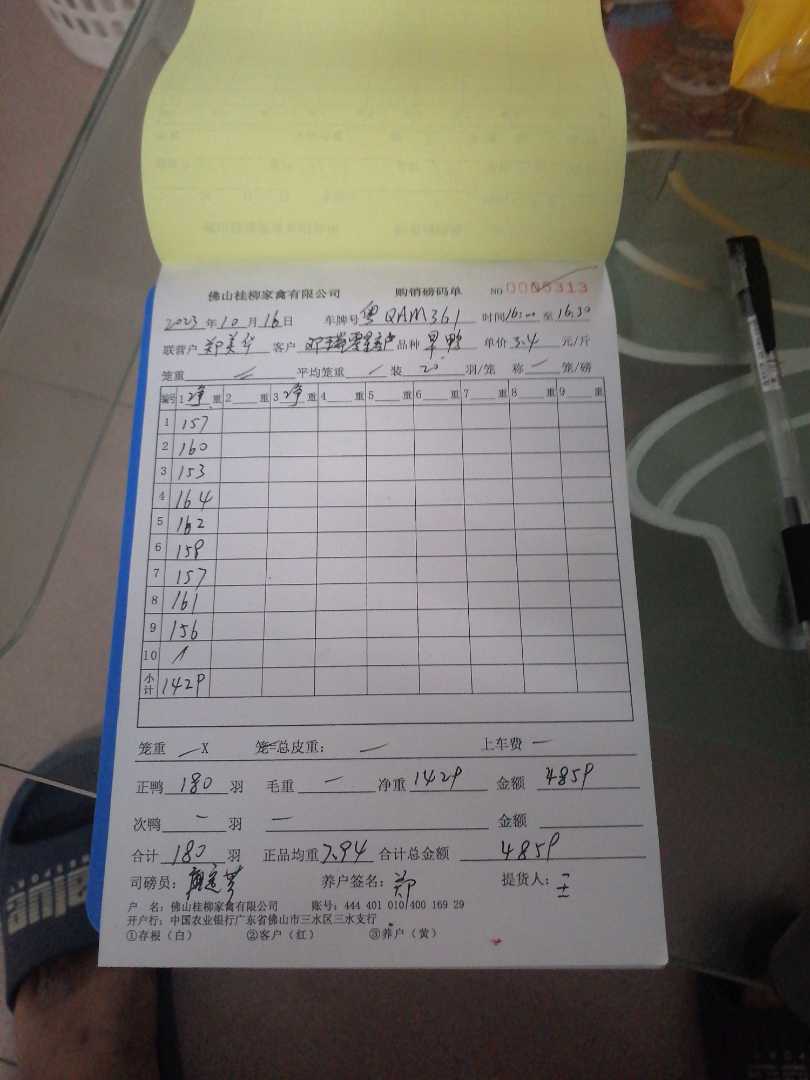 佛山桂柳家禽有限公司 购销磅码单 NO 0005313
2023年10月16日 车牌号 粤QAM361 时间16:00至16:30
联营户 郑美华 客户 品种 旱鸭 单价 3.4 元/斤
笼重 — 平均笼重 — 装 20 羽/笼 称 — 笼/磅
编号 1 净 重 2 重 3 净 重 4 重 5 重 6 重 7 重 8 重 9 重
1 157
2 160
3 153
4 164
5 162
6 159
7 157
8 161
9 156
10
小计 1429
笼重 — X 笼=总皮重: — 上车费 —
正鸭 180 羽 毛重 — 净重 1429 金额 4859
次鸭 — 羽 — 金额
合计 180 羽 正品均重 7.94 合计总金额 4859
司磅员: 养户签名: 郑 提货人: 王
户 名: 佛山桂柳家禽有限公司 账号: 444 401 010 400 169 29
开户行: 中国农业银行广东省佛山市三水区三水支行
①存根(白) ②客户(红) ③养户(黄)